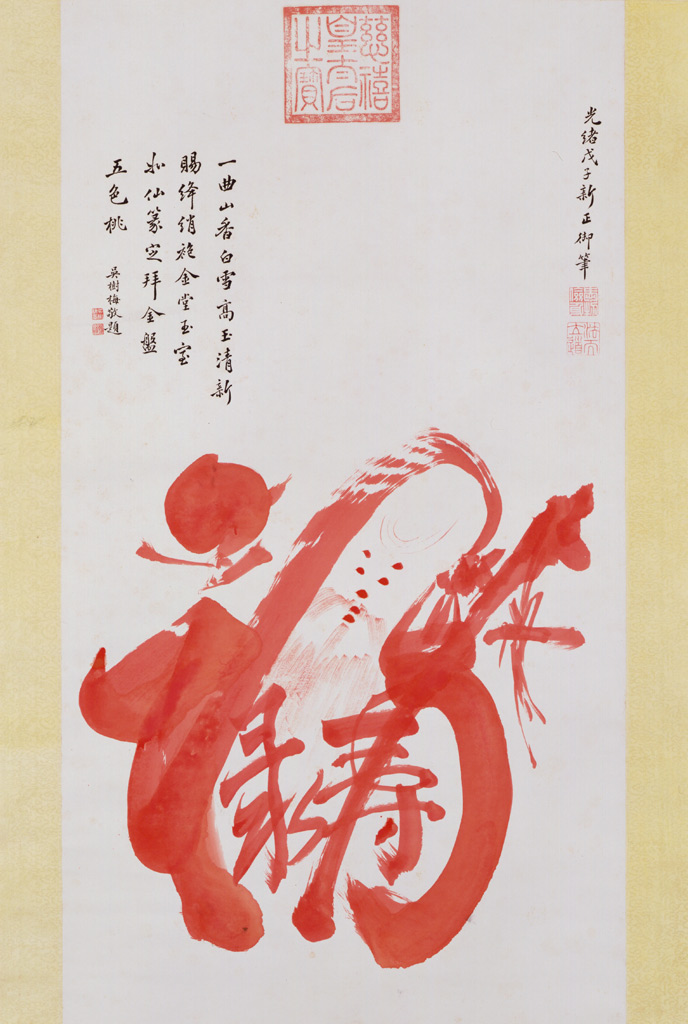 慈禧皇太后之寶
光緒戊子新正御筆
一曲山香白雪高玉清新
賜絳綃袍金堂玉室
仙篆定拜金盤
五色桃
吳樹梅敬題
福
禄
寿